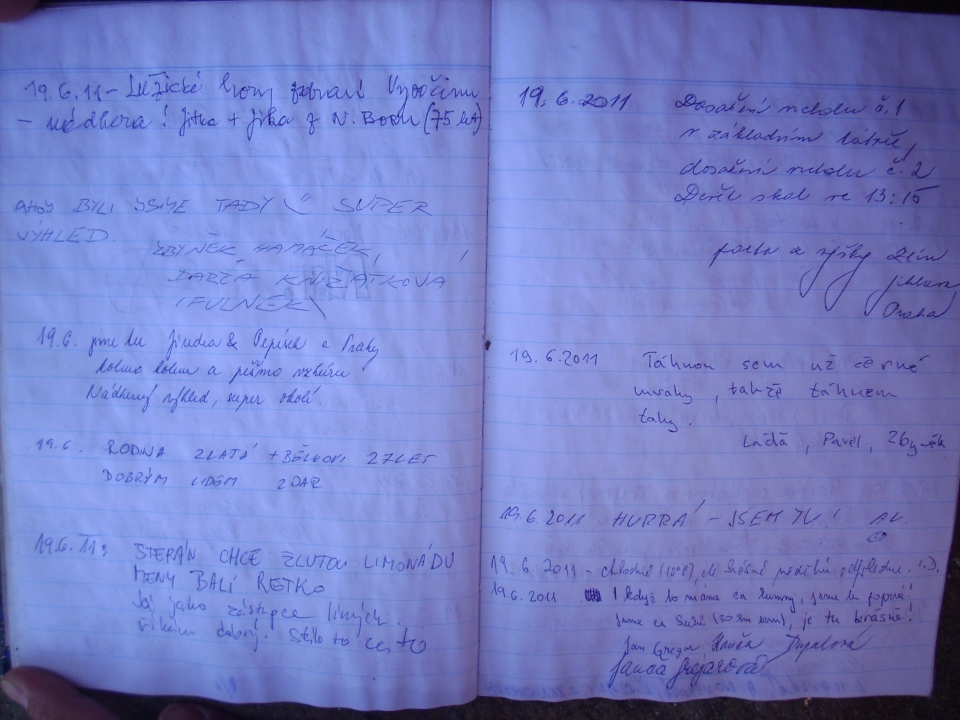 19.6.11 - Lužické hory zdraví Vysočinu
- nádhera! Jitka + Jirka z N. Boru (75 let)
AHOJ BYLI JSME TADY SUPER
VÝHLED.
ZBYNĚK HAMÁČEK,
(FULNEK)
19.6. jsme tu Jindra & Pepínek z Prahy
kolmo kolem a pěšmo vzhůru.
Nádherný výhled, super okolí.
19.6. RODINA ZLATÁ + BĚLKOVI 27 LET
DOBRÝM LIDEM ZDAR
19.6.11: ŠTĚPÁN CHCE ŽLUTOU LIMONÁDU
MENY BALÍ RETKO
Já jako zástupce líných
říkám dobrý! Stálo to za to
19.6.2011 Dosažení vrcholu č. 1
v základním táboře,
dosažení vrcholu č. 2
Devět skal ve 13:15
Jihlava
Praha
19.6.2011 Táhnou sem už černé
mraky, takže táhnem
taky.
Laďa, Pavel, Zbyněk
19.6.2011 HURRÁ - JSEM TU! AL.
19.6.2011 - chladné (10°C), ale krásné
19.6.2011 I když to máme za humny, jsme tu poprvé!
jsme ze (30 km sem), je tu krásně!
Jan Gregor Hanča